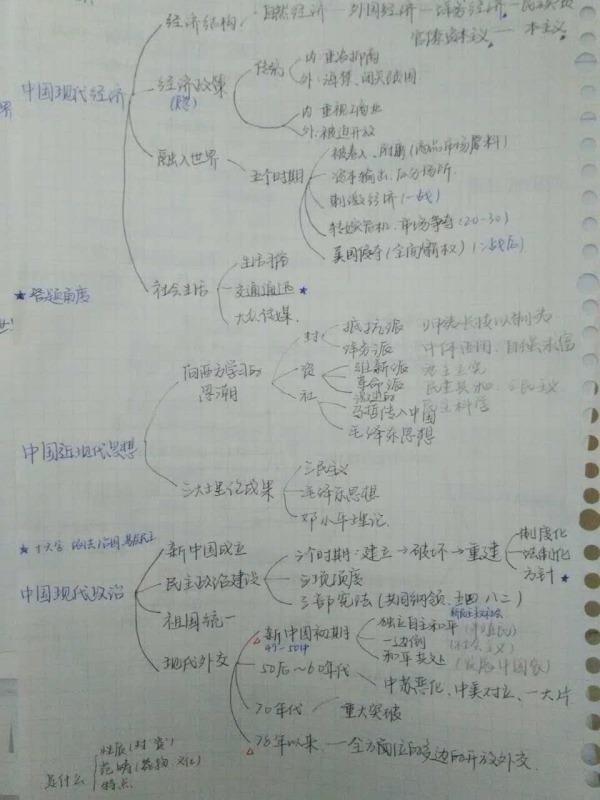 经济结构：自然经济—外国经济—洋务经济—民族资
官僚资本主义— 本主义
中国现代经济
经济政策
传统
内：重农抑商
外：海禁、闭关锁国
内：重视工商业
外：被迫开放
融入世界
五个时期
被卷入、附庸（商品市场原料）
资本输出、瓜分场所
刺激经济（一战）
转嫁危机、市场争夺（20-30）
美国侵夺（全面霸权）（二战后）
社会生活
生活习俗
交通通讯★
大众传媒
★答题角度
中国近现代思想
向西方学习的
思潮
封
抵抗派 师夷长技以制夷
洋务派 中体西用、自强求富
资
维新派 君主立宪
革命派 民主共和、三民主义
激进的 民主科学
社
马哲传入中国
毛泽东思想
三大理论成果
三民主义
毛泽东思想
邓小平理论
★十六字 依法治国 基层民主
中国现代政治
新中国成立
民主政治建设
3个时期：建立→破坏→重建
制度化
法制化
方针★
3项制度
三部宪法（共同纲领、五四、八二）
祖国统一
现代外交
△新中国初期
49-50中
独立自主和平
一边倒（社会主义）
和平共处（发展中国家）
50后～60年代
中苏恶化、中美对立、一大片
70年代
重大突破
△78年以来—全方位的多边的开放外交
是什么
性质（封、资）
范畴（器物、文化）
特点